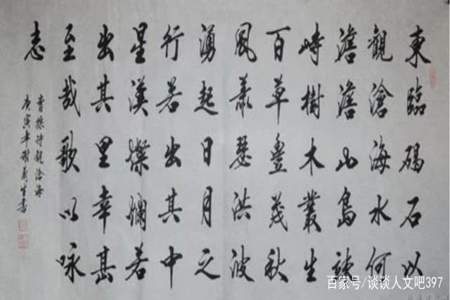 東臨碣石以
觀滄海水何
澹澹山島竦
峙樹木叢生
百草豐茂秋
風蕭瑟洪波
湧起日月之
行若出其中
星漢燦爛若
出其里幸甚
至哉歌以咏
志
曹操詩觀滄海
庚寅年生書
百家号/谈谈人文吧397